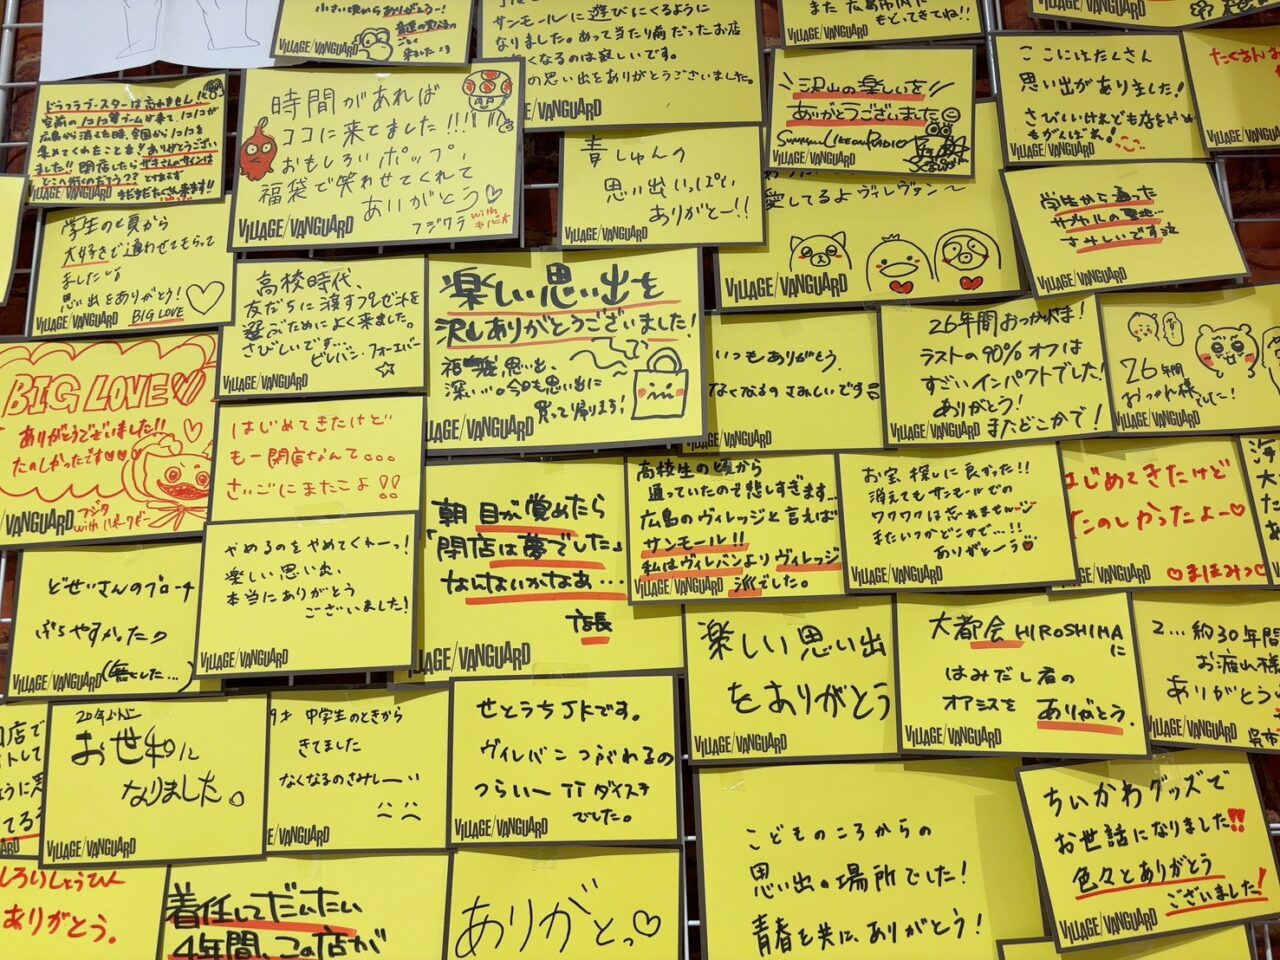 小さい頃からありがとうー!
VILLAGE/VANGUARD
サンモールに遊びにくるように
なりました。あって当たり前だったお店
なくなるのは寂しいです。
の思い出をありがとうございました。
VILLAGE/VANGUARD
また広島市内に
もどってきてね!!
VILLAGE/VANGUARD
沢山の楽しいを
ありがとうございました
VILLAGE/VANGUARD
ここにはたくさん
思い出がありました!
さびしいけれども
VILLAGE/VANGUARD
たくさん
VILLAGE/VANGUARD
ありがとうございました!!
VILLAGE/VANGUARD
時間があれば
ココに来てました!!!
おもしろいポップ、
福袋で笑わせてくれて
ありがとう
VILLAGE/VANGUARD
フジワラ with
青しゅんの
思い出いっぱい、
ありがとー!!
VILLAGE/VANGUARD
愛してるよヴィレヴァン〜
VILLAGE/VANGUARD
学生から通った
サブカルの聖地…
さみしいです
VILLAGE/VANGUARD
学生の頃から
大好きで通わせてもらって
ました
思い出をありがとう!
VILLAGE/VANGUARD BIG LOVE
高校時代、
友だちに渡すプレゼントを
選ぶためによく来ました。
さびしいです…
ビレバン・フォーエバー
VILLAGE/VANGUARD
楽しい思い出を
沢山ありがとうございました!
福袋も思い出
深い…。今日も思い出に
買って帰ります!
VILLAGE/VANGUARD
いつもありがとう。
なくなるのさみしいです
VILLAGE/VANGUARD
26年間おつかれさま!
ラストの90%オフは
すごいインパクトでした!
ありがとう!
またどこかで!
VILLAGE/VANGUARD
26年間
おつかれ様でした!
VILLAGE/VANGUARD
BIG LOVE♡
ありがとうございました!!
たのしかったです♡♡♡
VANGUARD
フジタ
はじめてきたけど
もー閉店なんて...
さいごにまたこよ!!
VILLAGE/VANGUARD
朝 目が覚めたら
「閉店は夢でした」
なんてないかなあ…
店長
VILLAGE/VANGUARD
高校生の頃から
通っていたので悲しすぎます…
広島のヴィレッジと言えば
サンモール!!
私はヴィレバンよりヴィレッジ
派でした。
VILLAGE/VANGUARD
お宝探しに良かった!!
消えてもサンモールでの
ワクワクは忘れません
またいつかどこかで…!!
ありがとーう♡
VILLAGE/VANGUARD
はじめてきたけど
たのしかったよー♡
♡まほみつ♡
どせいさんのブローチ
ぶちやすかった
VILLAGE/VANGUARD
やめるのをやめてくれーっ!
楽しい思い出、
本当にありがとう
ございました!
VILLAGE/VANGUARD
楽しい思い出
をありがとう
VILLAGE/VANGUARD
大都会HIROSHIMAに
はみだし者の
オアシスを ありがとう.
VILLAGE/VANGUARD
約30年間
お疲れ様
ありがとう
VILLAGE/VANGUARD
呉市
20年以上
お世話に
なりました。
VILLAGE/VANGUARD
中学生のときから
きてました
なくなるのさみしー
VANGUARD
せとうちJKです。
ヴィレバンつぶれるの
つらいー TT ダイスキ
でした。
VILLAGE/VANGUARD
こどものころからの
思い出の場所でした!
青春を共に、ありがとう!
ちいかわグッズで
お世話になりました!!
色々とありがとう
ございました!
VILLAGE/VANGUARD
ありがとう。
着任してだいたい
4年間、この店が
ありがとっ♡